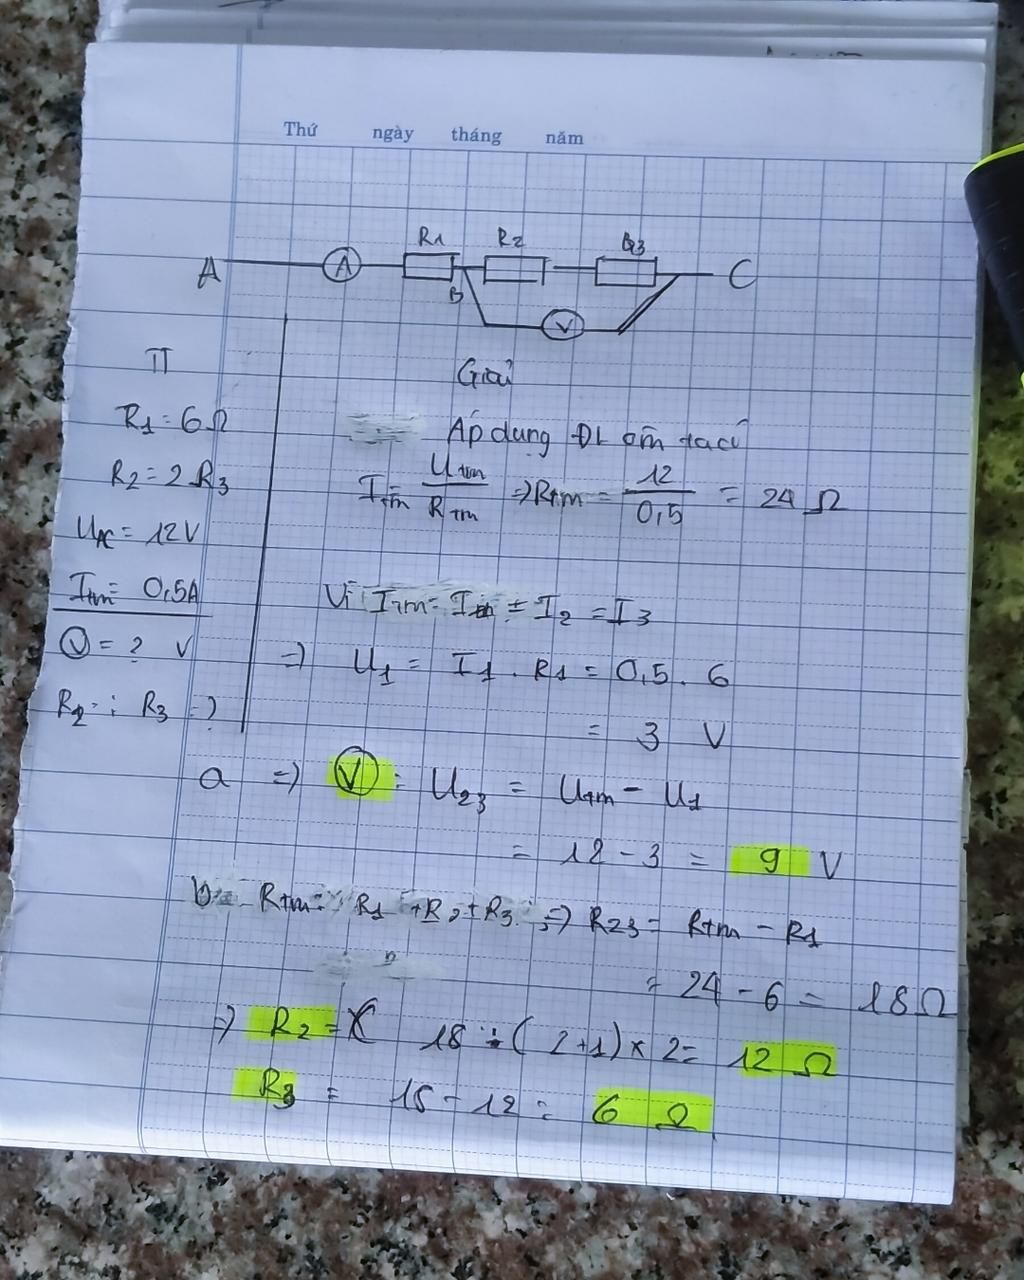 Thứ ngày tháng năm
R1 R2 R3
A A C
B
V
TT
R1 = 6 Ω
R2 = 2 R3
UAC = 12 V
Itm = 0,5A
V = ? V
R2 ; R3 = ?
Giải
Áp dụng ĐL ôm ta có
Itm = Utm / Rtm => Rtm = 12 / 0,5 = 24 Ω
Vì Itm = I1 = I2 = I3
=> U1 = I1 . R1 = 0,5 . 6
= 3 V
a => V = U23 = Utm - U1
= 12 - 3 = 9 V
b Rtm = R1 + R2 + R3 => R23 = Rtm - R1
= 24 - 6 = 18 Ω
=> R2 = 18 : (2+1) x 2 = 12 Ω
R3 = 18 - 12 = 6 Ω